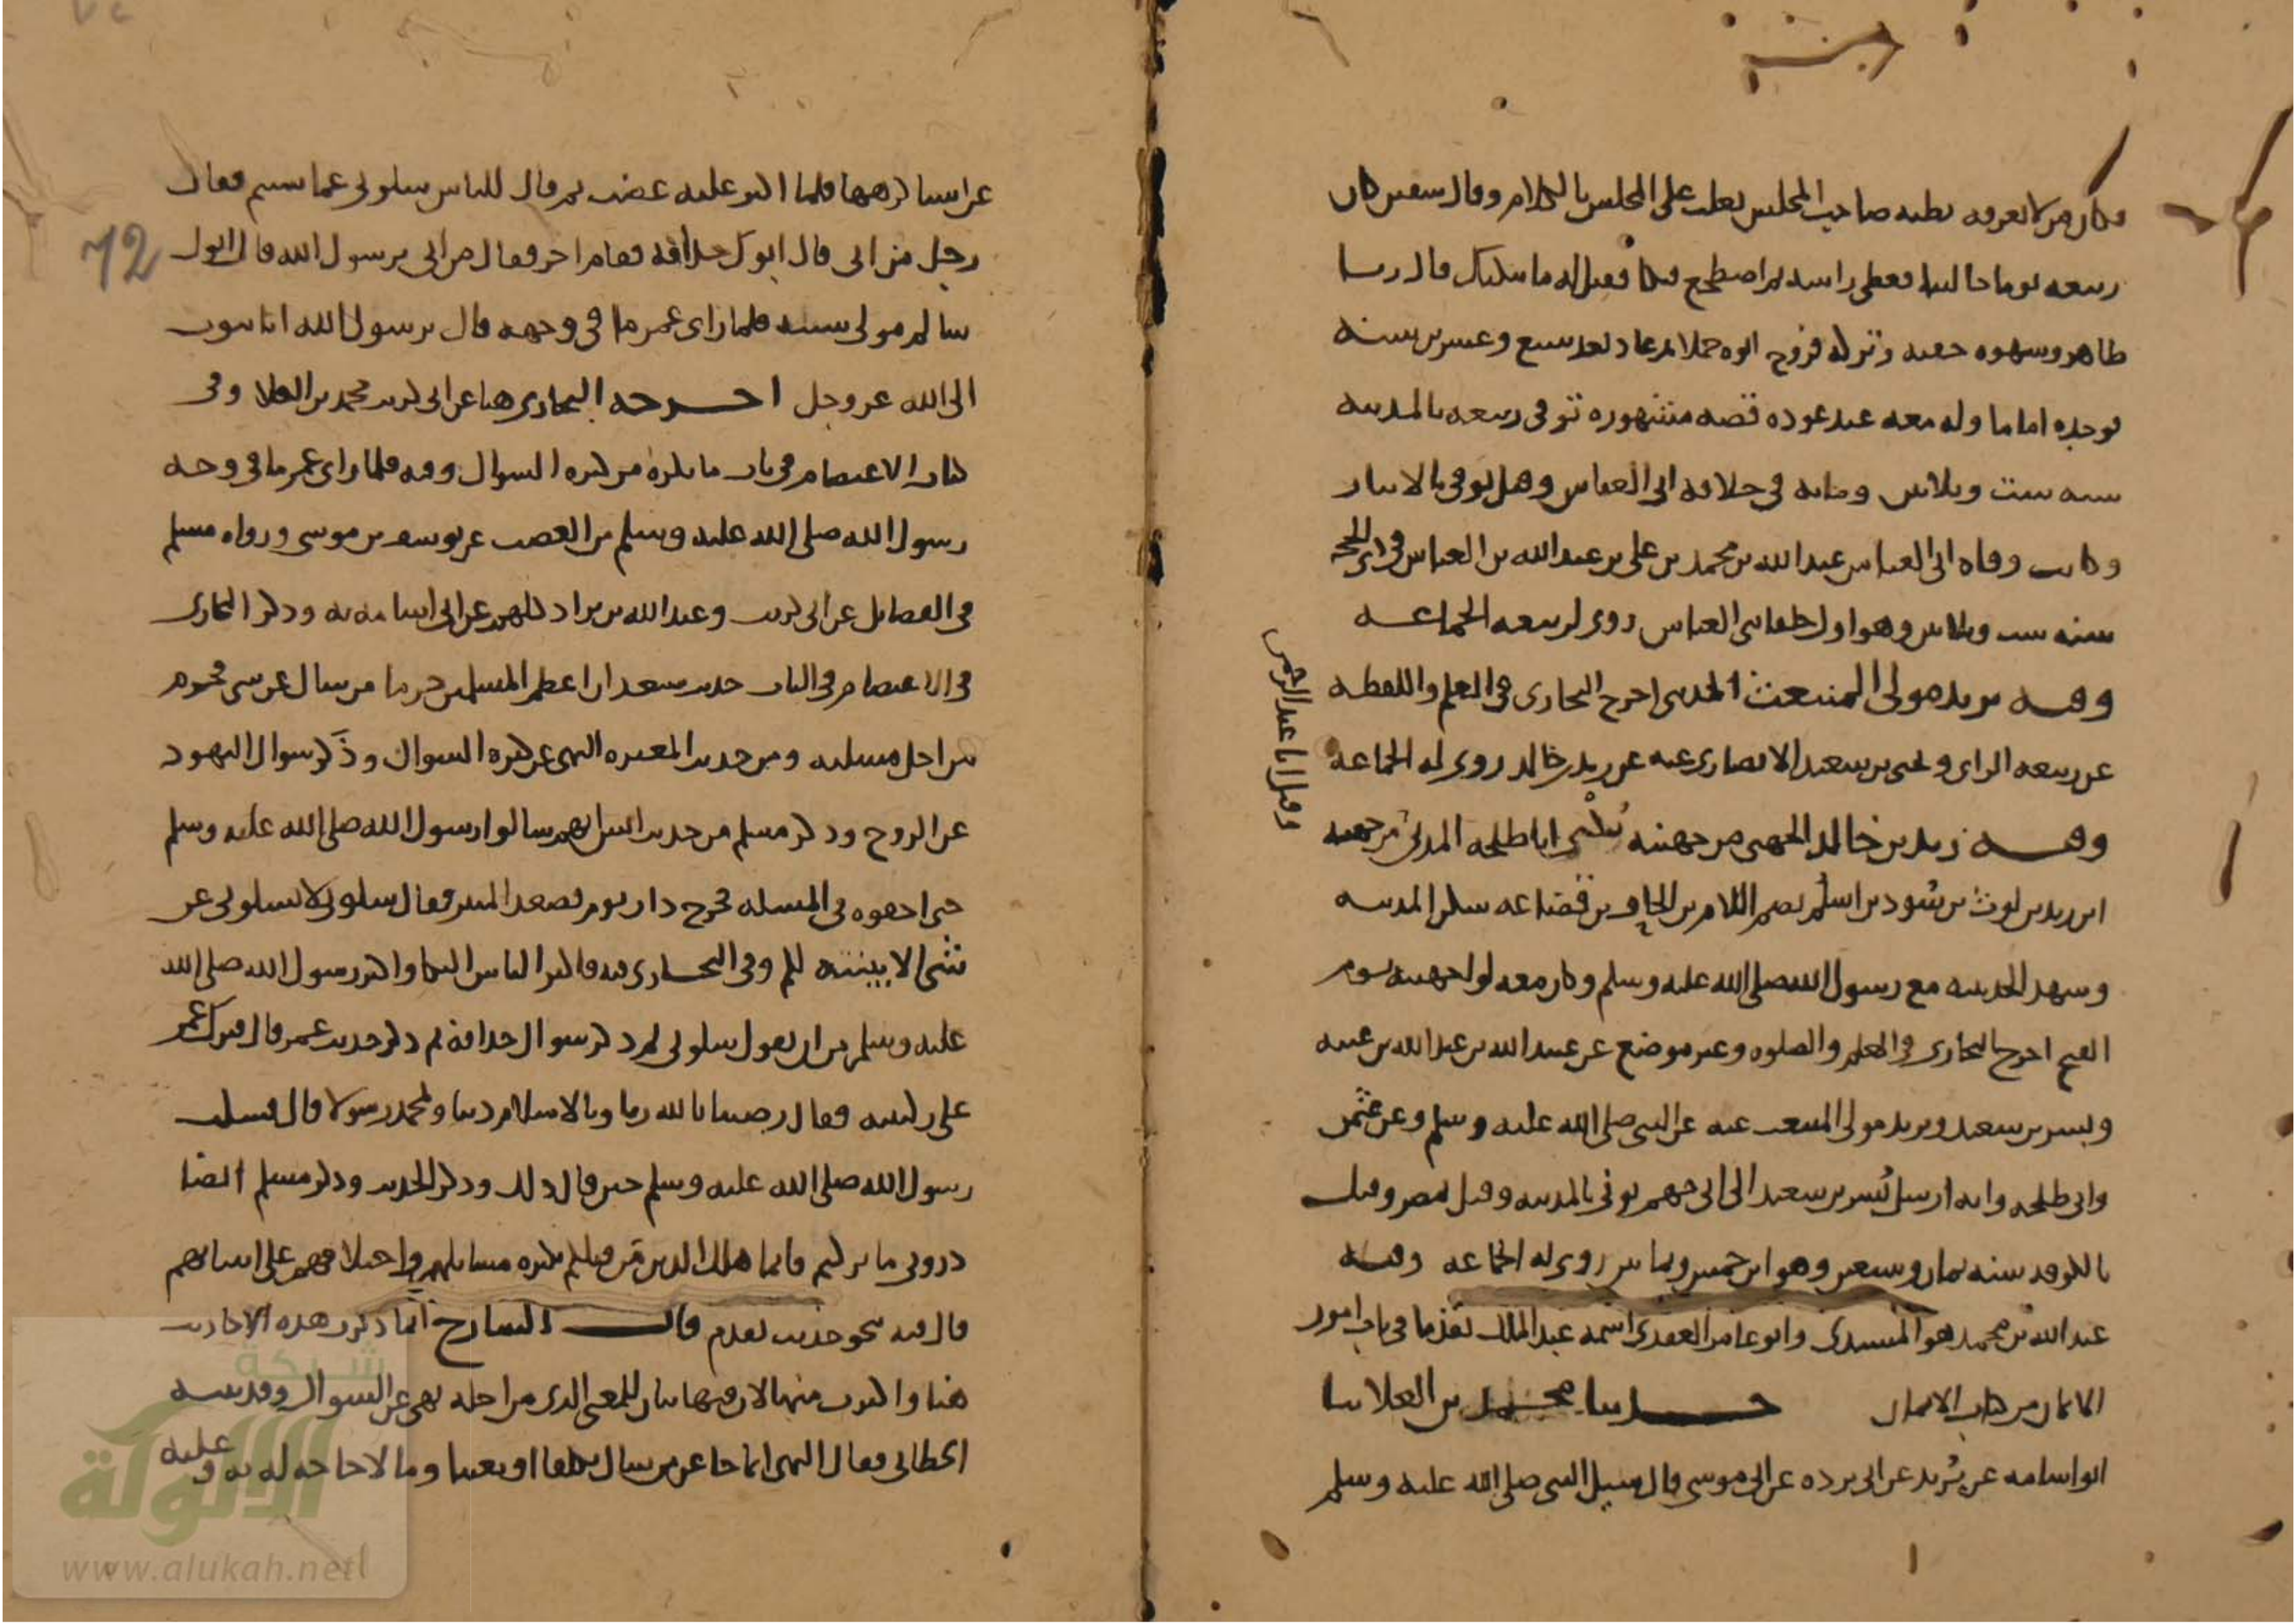 وكان من لا يعرفه يظنه صاحب المجلس يغلب على المجلس بالكلام وقال سفين كان
ربيعه يوما جالسا فغطى راسه ثم اضطجع فبكا فقيل له ما يبكيك قال ريا
ظاهر وشهوه خفيه وتركه فروخ ابوه حملا ثم عاد بعد سبع وعشرين سنة
فوجده اماما وله معه عند عوده قصه مشهوره توفى ربيعه بالمدينه
سنه ست وثلاثين ومائه في خلافه ابي العباس وقيل توفي بالانبار
وكانت وفاه ابي العباس عبد الله بن محمد بن علي بن عبد الله بن العباس في ذي الحجه
سنه ست وثلاثين وهو اول خلفا بني العباس روى لربيعه الجماعه
وفيه يزيد مولى المنبعث المدني اخرج البخاري في العلم واللقطه
عن ربيعه الراي ويحيى بن سعيد الانصاري عنه عن زيد بن خالد روى له الجماعه
وفيه زيد بن خالد الجهني من جهينه يكنى ابا طلحه المدني من جهينه
وقيل ابا عبد الرحمن
ابن زيد بن ليث بن سُود بن اسلُم بضم اللام بن الحاف بن قضاعه سكن المدينه
وشهد الحديبيه مع رسول الله صلى الله عليه وسلم وكان معه لوا جهينه يوم
الفتح اخرج البخاري في العلم والصلوه وغير موضع عن عبيد الله بن عبد الله بن عتبه
وبسر بن سعيد ويزيد مولى المنبعث عنه عن النبي صلى الله عليه وسلم وعن عثمن
وابي طلحه وانه ارسل بُسر بن سعيد الى ابي جهيم توفي بالمدينه وقيل بمصر وقيل
بالكوفه سنه ثمان وسبعين وهو ابن خمس وثمانين روى له الجماعه وفيه
عبد الله بن محمد هو المسندي وابو عامر العقدي اسمه عبد الملك تقدما في باب امور
الايمان من كتاب الايمان حدثنا محمد بن العلا ثنا
ابو اسامه عن بُريد عن ابي برده عن ابي موسى قال سيل النبي صلى الله عليه وسلم
72
عن اشيا كرهها فلما اكثر عليه غضب ثم قال للناس سلوني عما شيتم فقال
رجل من ابي قال ابوك حذافه فقام اخر فقال من ابي يرسول الله قال ابوك
سالم مولى شيبه فلما راى عمر ما في وجهه قال يرسول الله انا نتوب
الى الله عز وجل اخرجه البخاري هنا عن ابي كريب محمد بن العلا وفي
كتاب الاعتصام في باب ما يكره من كثره السوال وفيه فلما راى عمر ما في وجه
رسول الله صلى الله عليه وسلم من الغضب عن يوسف بن موسى ورواه مسلم
في الفضايل عن ابي كريب وعبد الله بن براد كلهم عن ابي اسامه به وذكر البخاري
في الاعتصام في الباب حديث سعد ان اعظم المسلمين جرما من سال عن شي فحرم
من اجل مسلته ومن حديث المغيره النهي عن كثره السوال وذَكر سوال اليهود
عن الروح وذكر مسلم من حديث انس انهم سالوا رسول الله صلى الله عليه وسلم
حتى احفوه في المسله فخرج ذات يوم فصعد المنبر فقال سلوني لا تسلوني عن
شي الا بينته لكم وفي البخاري فيه فاكثر الناس البكا واكثر رسول الله صلى الله
عليه وسلم من ان يقول سلوني ثم ذكر سوال حذافة ثم ذكر حديث عمر قال فبرك عمر
على ركبتيه فقال رضينا بالله ربا وبالاسلام دينا وبمحمد رسولا قال فسكت
رسول الله صلى الله عليه وسلم حين قال ذلك وذكر الحديث وذكر مسلم ايضا
ذروني ما تركتم فانما هلك الذين من قبلكم بكثره مسايلهم واختلافهم على انبيائهم
قال فيه نحو حديث تقدم قال الشارح انما ذكرت هذه الاحاديث
هنا واكثرت منها لان فيها بيان للمعنى الذي من اجله نهى عن السوال وقد بينه
الخطابي فقال النهي انما جا عمن سال تكلفا او تعنتا وما لا حاجه له به وعليه